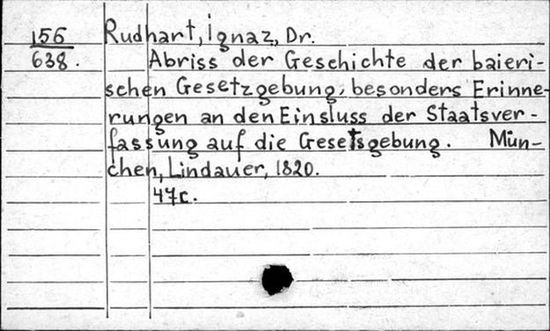 156 Rudhart, Ignaz, Dr.
638. Abriss der Geschichte der baieri-
schen Gesetzgebung, besonders Erinne-
rungen an den Einsluss der Staatsver-
fassung auf die Gesetsgebung. Mün-
chen, Lindauer, 1820.
47c.